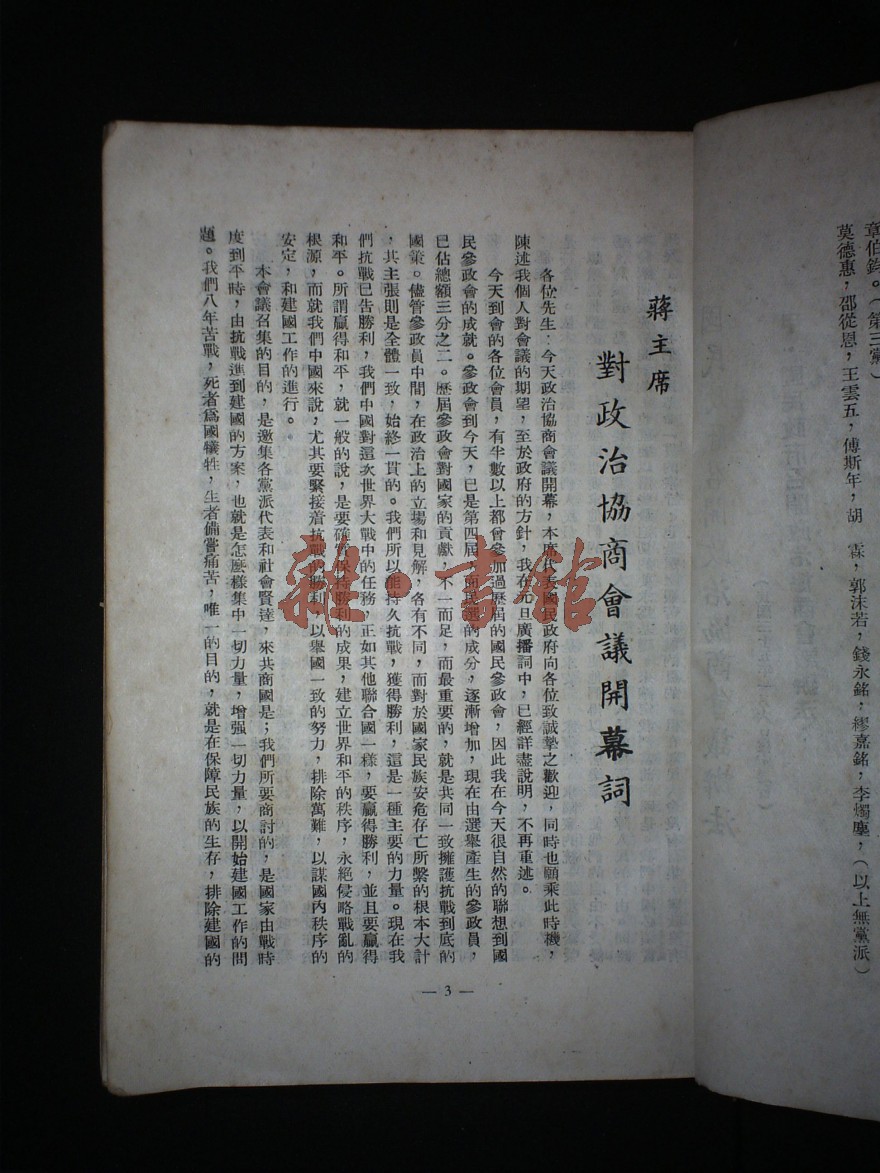 章伯鈞。(第三黨)
莫德惠，邵從恩，王雲五，傅斯年，胡　霖，郭沫若，錢永銘，繆嘉銘，李燭塵，(以上無黨派)
蔣主席
對政治協商會議開幕詞
各位先生：今天政治協商會議開幕，本席代表國民政府向各位致誠摯之歡迎，同時也願乘此時機，
陳述我個人對會議的期望，至於政府的方針，我在元旦廣播詞中，已經詳盡說明，不再重述。
今天到會的各位會員，有半數以上都曾參加過歷屆的國民參政會，因此我在今天很自然的聯想到國
民參政會的成就。參政會到今天，已是第四屆，而民選的成分，逐漸增加，現在由選舉產生的參政員，
已佔總額三分之二。歷屆參政會對國家的貢獻，不一而足，而最重要的，就是共同一致擁護抗戰到底的
國策。儘管參政員中間，在政治上的立場和見解，各有不同，而對於國家民族安危存亡所繫的根本大計
，其主張則是全體一致，始終一貫的。我們所以能持久抗戰，獲得勝利，這是一種主要的力量。現在我
們抗戰已告勝利，我們中國對這次世界大戰中的任務，正如其他聯合國一樣，要贏得勝利，並且要贏得
和平。所謂贏得和平，就一般的說，是要確實保持勝利的成果，建立世界和平的秩序，永絕侵略戰亂的
根源，而就我們中國來說，尤其要緊接着抗戰的勝利，以舉國一致的努力，排除萬難，以謀國內秩序的
安定，和建國工作的進行。
本會議召集的目的，是邀集各黨派代表和社會賢達，來共商國是；我們所要商討的，是國家由戰時
度到平時，由抗戰進到建國的方案，也就是怎麼樣集中一切力量，增强一切力量，以開始建國工作的問
題。我們八年苦戰，死者爲國犧牲，生者備嘗痛苦，唯一的目的，就是在保障民族的生存，排除建國的
— 3 —
雜·書館